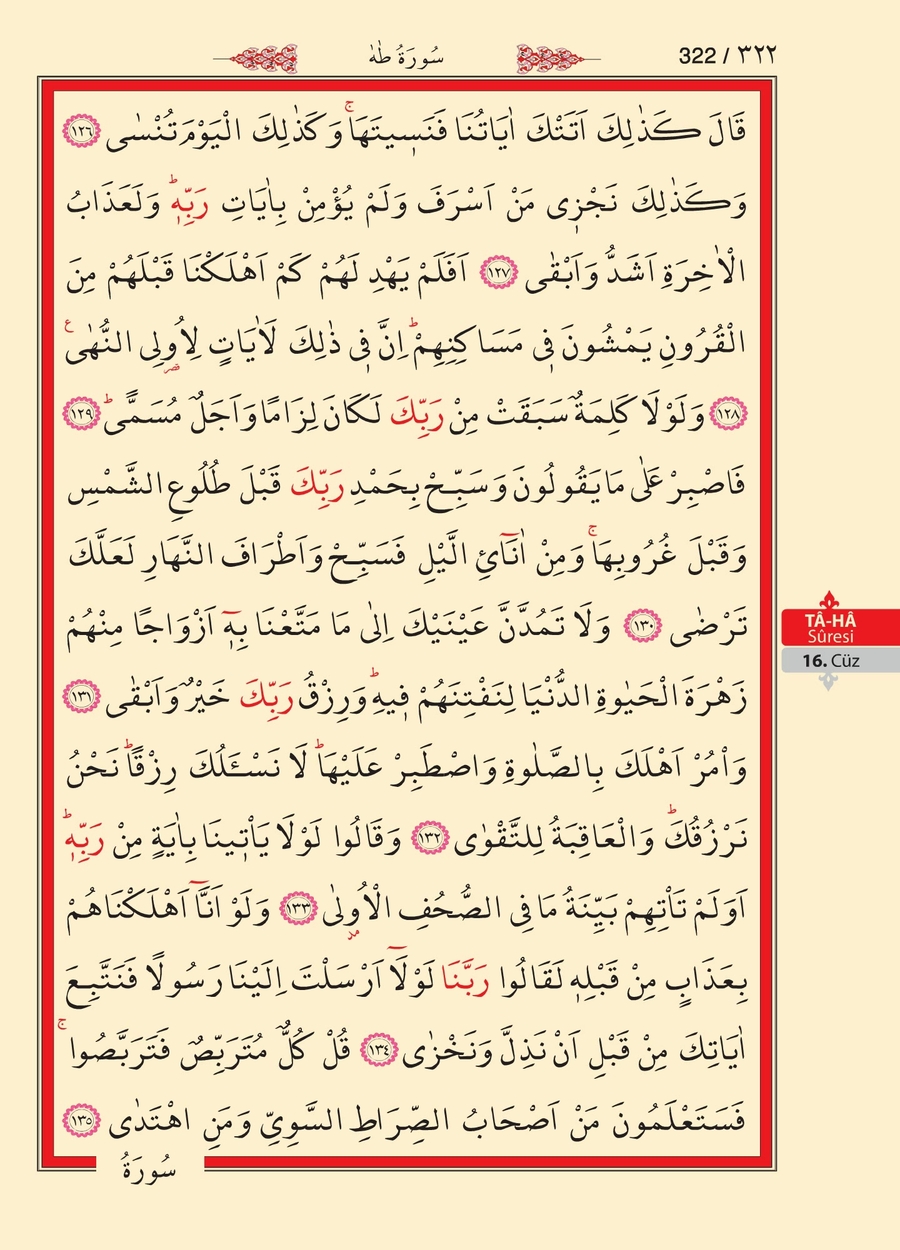 سُورَةُ طٰهٰ
322 / ٣٢٢
قَالَ كَذٰلِكَ اَتَتْكَ اٰيَاتُنَا فَنَس۪يتَهَاۚ وَكَذٰلِكَ الْيَوْمَ تُنْسٰى ﴿١٢٦﴾
وَكَذٰلِكَ نَجْز۪ي مَنْ اَسْرَفَ وَلَمْ يُؤْمِنْ بِاٰيَاتِ رَبِّه۪ۜ وَلَعَذَابُ
الْاٰخِرَةِ اَشَدُّ وَاَبْقٰى ﴿١٢٧﴾ اَفَلَمْ يَهْدِ لَهُمْ كَمْ اَهْلَكْنَا قَبْلَهُمْ مِنَ
الْقُرُونِ يَمْشُونَ ف۪ي مَسَاكِنِهِمْۜ اِنَّ ف۪ي ذٰلِكَ لَاٰيَاتٍ لِاُو۬لِي النُّهٰى۟
﴿١٢٨﴾ وَلَوْلَا كَلِمَةٌ سَبَقَتْ مِنْ رَبِّكَ لَكَانَ لِزَامًا وَاَجَلٌ مُسَمًّىۜ ﴿١٢٩﴾
فَاصْبِرْ عَلٰى مَا يَقُولُونَ وَسَبِّحْ بِحَمْدِ رَبِّكَ قَبْلَ طُلُوعِ الشَّمْسِ
وَقَبْلَ غُرُوبِهَاۚ وَمِنْ اٰنَٓائِ الَّيْلِ فَسَبِّحْ وَاَطْرَافَ النَّهَارِ لَعَلَّكَ
تَرْضٰى ﴿١٣٠﴾ وَلَا تَمُدَّنَّ عَيْنَيْكَ اِلٰى مَا مَتَّعْنَا بِه۪ٓ اَزْوَاجًا مِنْهُمْ
زَهْرَةَ الْحَيٰوةِ الدُّنْيَا لِنَفْتِنَهُمْ ف۪يهِۜ وَرِزْقُ رَبِّكَ خَيْرٌ وَاَبْقٰى ﴿١٣١﴾
وَأْمُرْ اَهْلَكَ بِالصَّلٰوةِ وَاصْطَبِرْ عَلَيْهَاۜ لَا نَسْـَٔلُكَ رِزْقًاۜ نَحْنُ
نَرْزُقُكَۜ وَالْعَاقِبَةُ لِلتَّقْوٰى ﴿١٣٢﴾ وَقَالُوا لَوْلَا يَأْت۪ينَا بِاٰيَةٍ مِنْ رَبِّه۪ۜ
اَوَلَمْ تَأْتِهِمْ بَيِّنَةُ مَا فِي الصُّحُفِ الْاُو۫لٰى ﴿١٣٣﴾ وَلَوْ اَنَّٓا اَهْلَكْنَاهُمْ
بِعَذَابٍ مِنْ قَبْلِه۪ لَقَالُوا رَبَّنَا لَوْلَٓا اَرْسَلْتَ اِلَيْنَا رَسُولًا فَنَتَّبِعَ
اٰيَاتِكَ مِنْ قَبْلِ اَنْ نَذِلَّ وَنَخْزٰى ﴿١٣٤﴾ قُلْ كُلٌّ مُتَرَبِّصٌ فَتَرَبَّصُواۚ
فَسَتَعْلَمُونَ مَنْ اَصْحَابُ الصِّرَاطِ السَّوِيِّ وَمَنِ اهْتَدٰى ﴿١٣٥﴾
سُورَةُ
TÂ-HÂ
Sûresi
16. Cüz